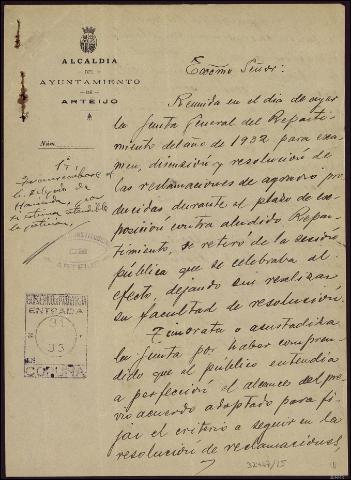 ALCALDIA
DEL
AYUNTAMIENTO
DE
ARTEIJO
Núm.
Excmo Señor:
Reunida en el dia de ayer
la Junta General del Reparti-
miento del año de 1932 para exa-
men, discusión y resolución de
las reclamaciones de agravio pro-
ducidas durante el plazo de ex-
posición contra aludido Repar-
timiento, se retiró de la sesión
pública que se celebraba al
efecto, dejando sin realizar
su facultad de resolución.
Timorata o asustadiza
la Junta por haber compren-
dido que el público entendía
a perfección el alcance del pre-
vio acuerdo adoptado para fi-
jar el criterio a seguir en la
resolución de reclamaciones,
Hacienda
la petición
ARTEIJO
ENTRADA
CORUÑA